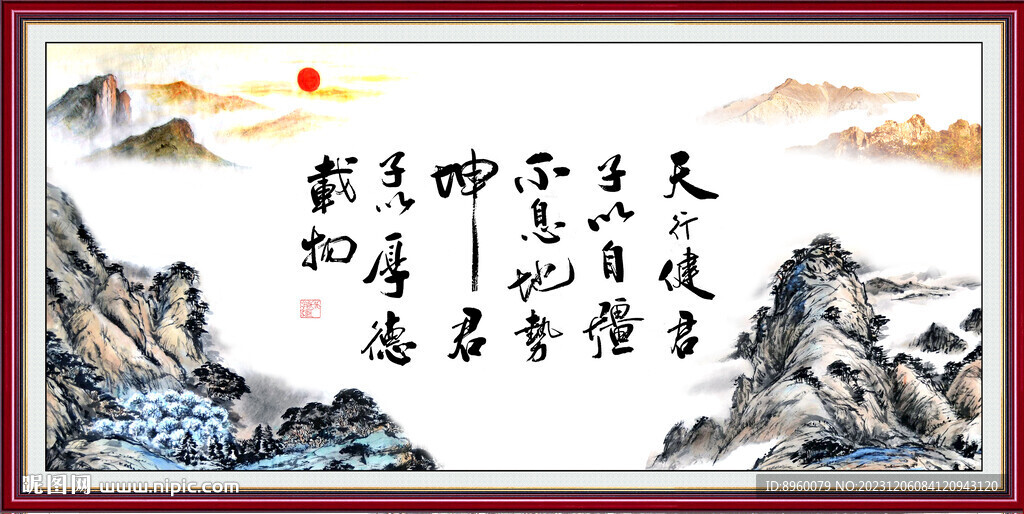 天行健君
子以自彊
不息地勢
坤君
子以厚德
載物
昵图网 www.nipic.com
ID:8960079 NO:20231206084120943120